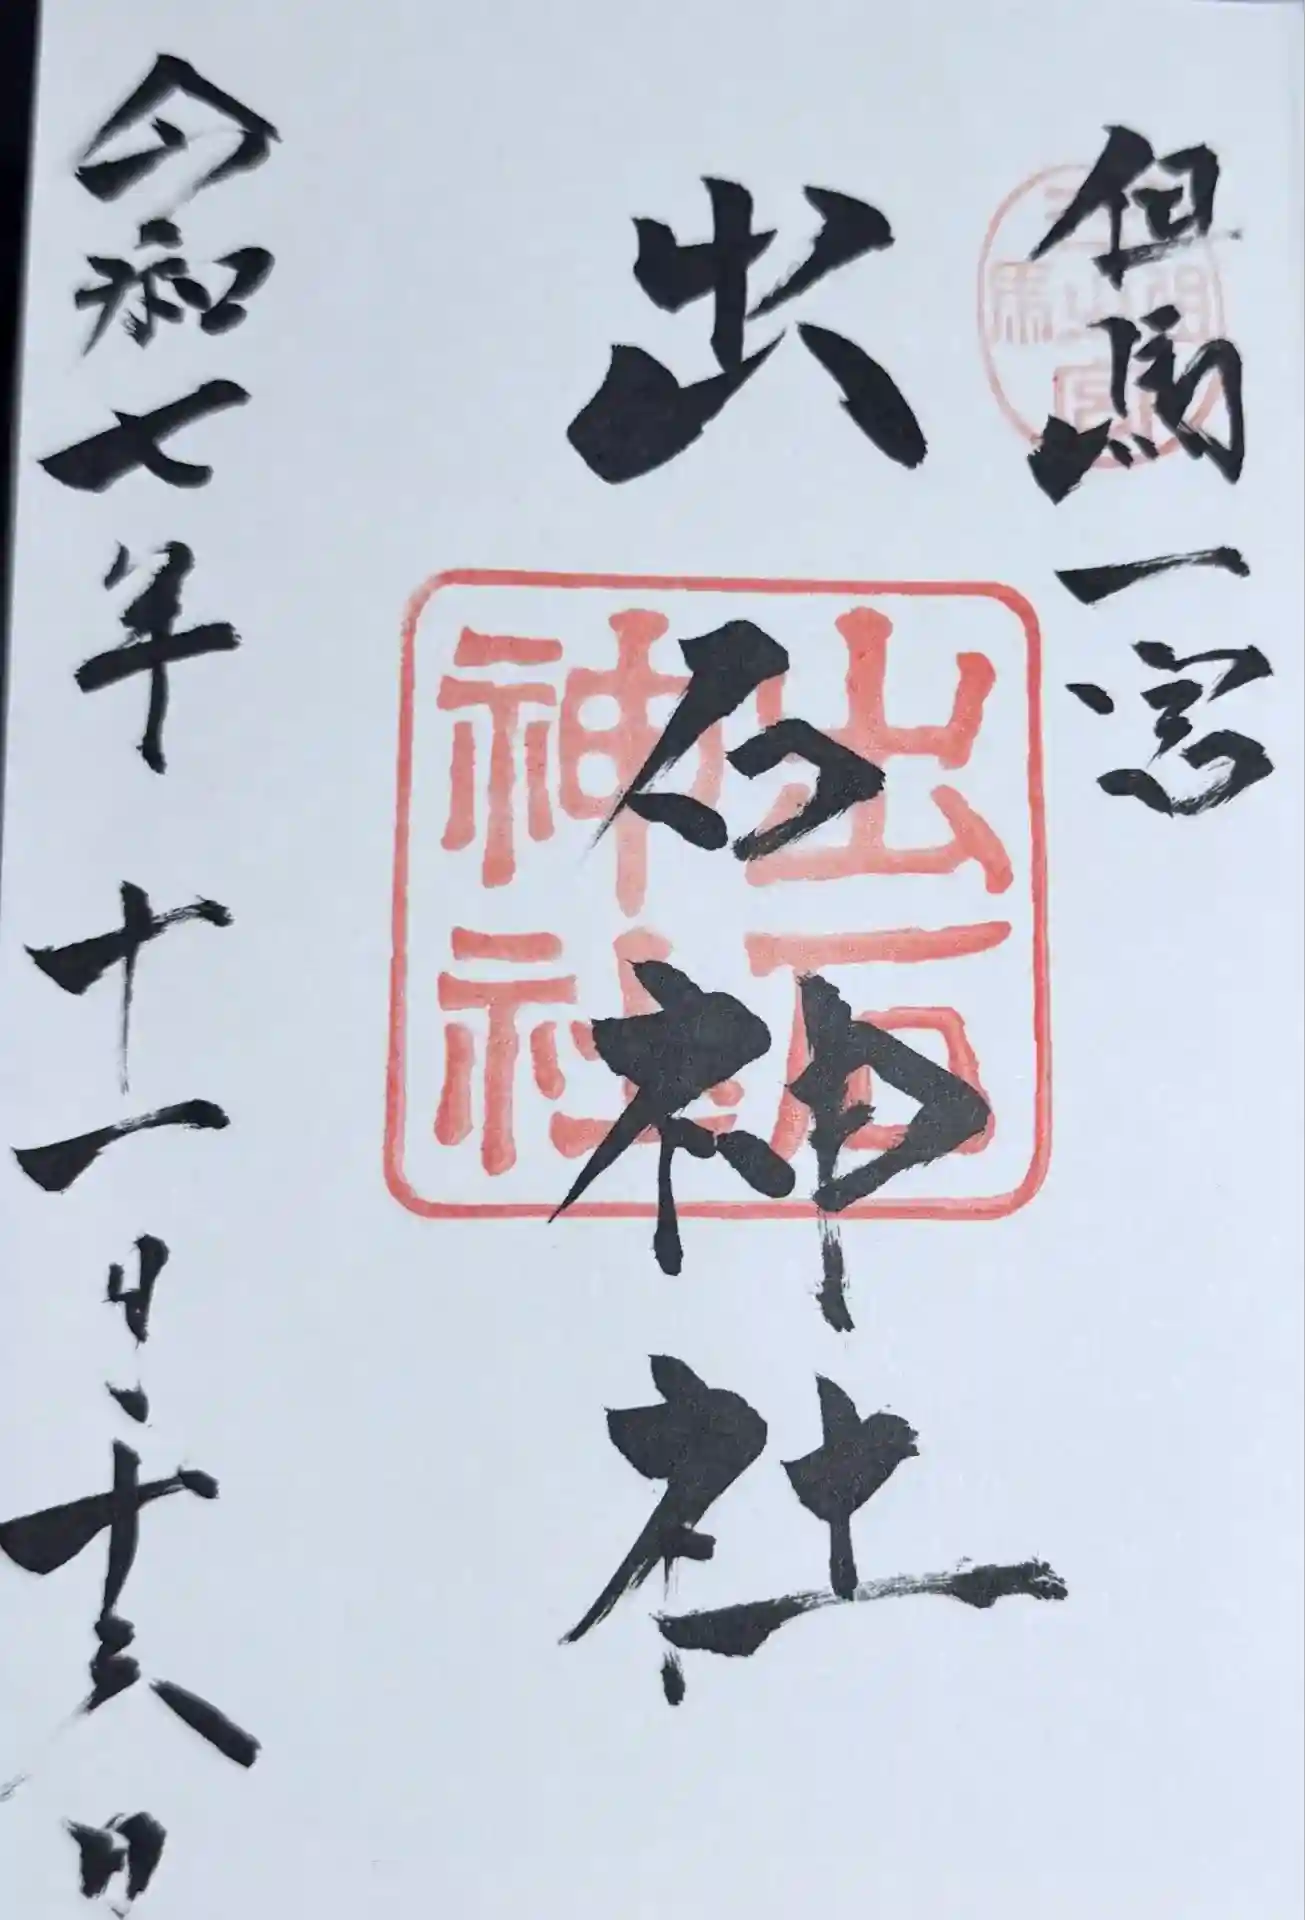 但馬一宮
出石神社
出石
神社
令和七年十一月十六日